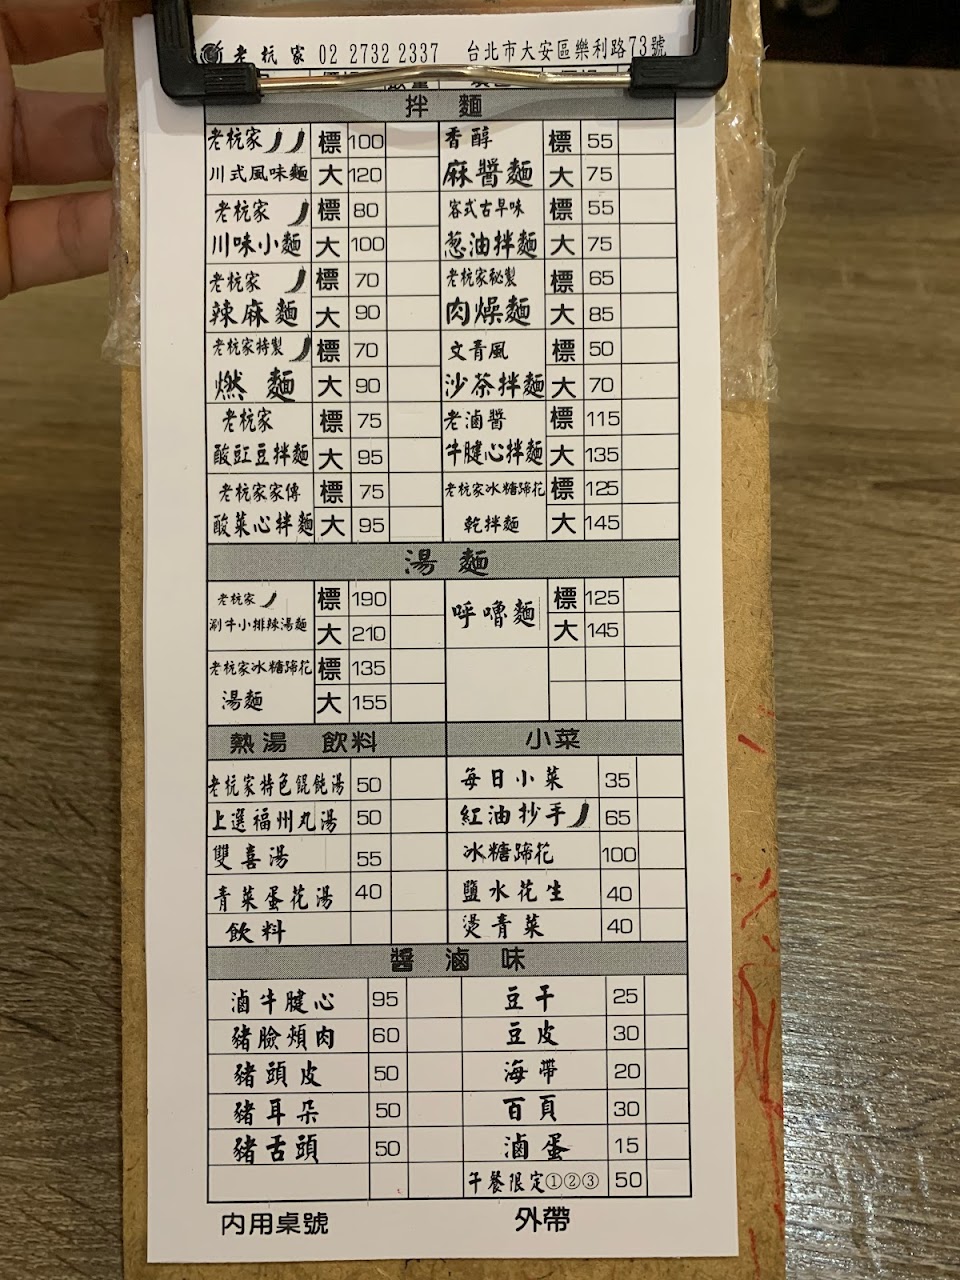 老杭家 02 2732 2337 台北市大安區樂利路73號
拌 麵
老杭家 標 100 香醇 標 55
川式風味麵 大 120 麻醬麵 大 75
老杭家 標 80 客式古早味 標 55
川味小麵 大 100 葱油拌麵 大 75
老杭家 標 70 老杭家秘製 標 65
辣麻麵 大 90 肉燥麵 大 85
老杭家特製 標 70 文青風 標 50
燃 麵 大 90 沙茶拌麵 大 70
老杭家 標 75 老滷醬 標 115
酸豇豆拌麵 大 95 牛腱心拌麵 大 135
老杭家家傳 標 75 老杭家冰糖蹄花 標 125
酸菜心拌麵 大 95 乾拌麵 大 145
湯 麵
老杭家 標 190 呼嚕麵 標 125
涮牛小排辣湯麵 大 210 大 145
老杭家冰糖蹄花 標 135
湯麵 大 155
熱湯 飲料 小菜
老杭家特色餛飩湯 50 每日小菜 35
上選福州丸湯 50 紅油抄手 65
雙喜湯 55 冰糖蹄花 100
青菜蛋花湯 40 鹽水花生 40
飲料 燙青菜 40
醬 滷 味
滷牛腱心 95 豆干 25
豬臉頰肉 60 豆皮 30
豬頭皮 50 海帶 20
豬耳朵 50 百頁 30
豬舌頭 50 滷蛋 15
午餐限定①②③ 50
内用桌號 外帶